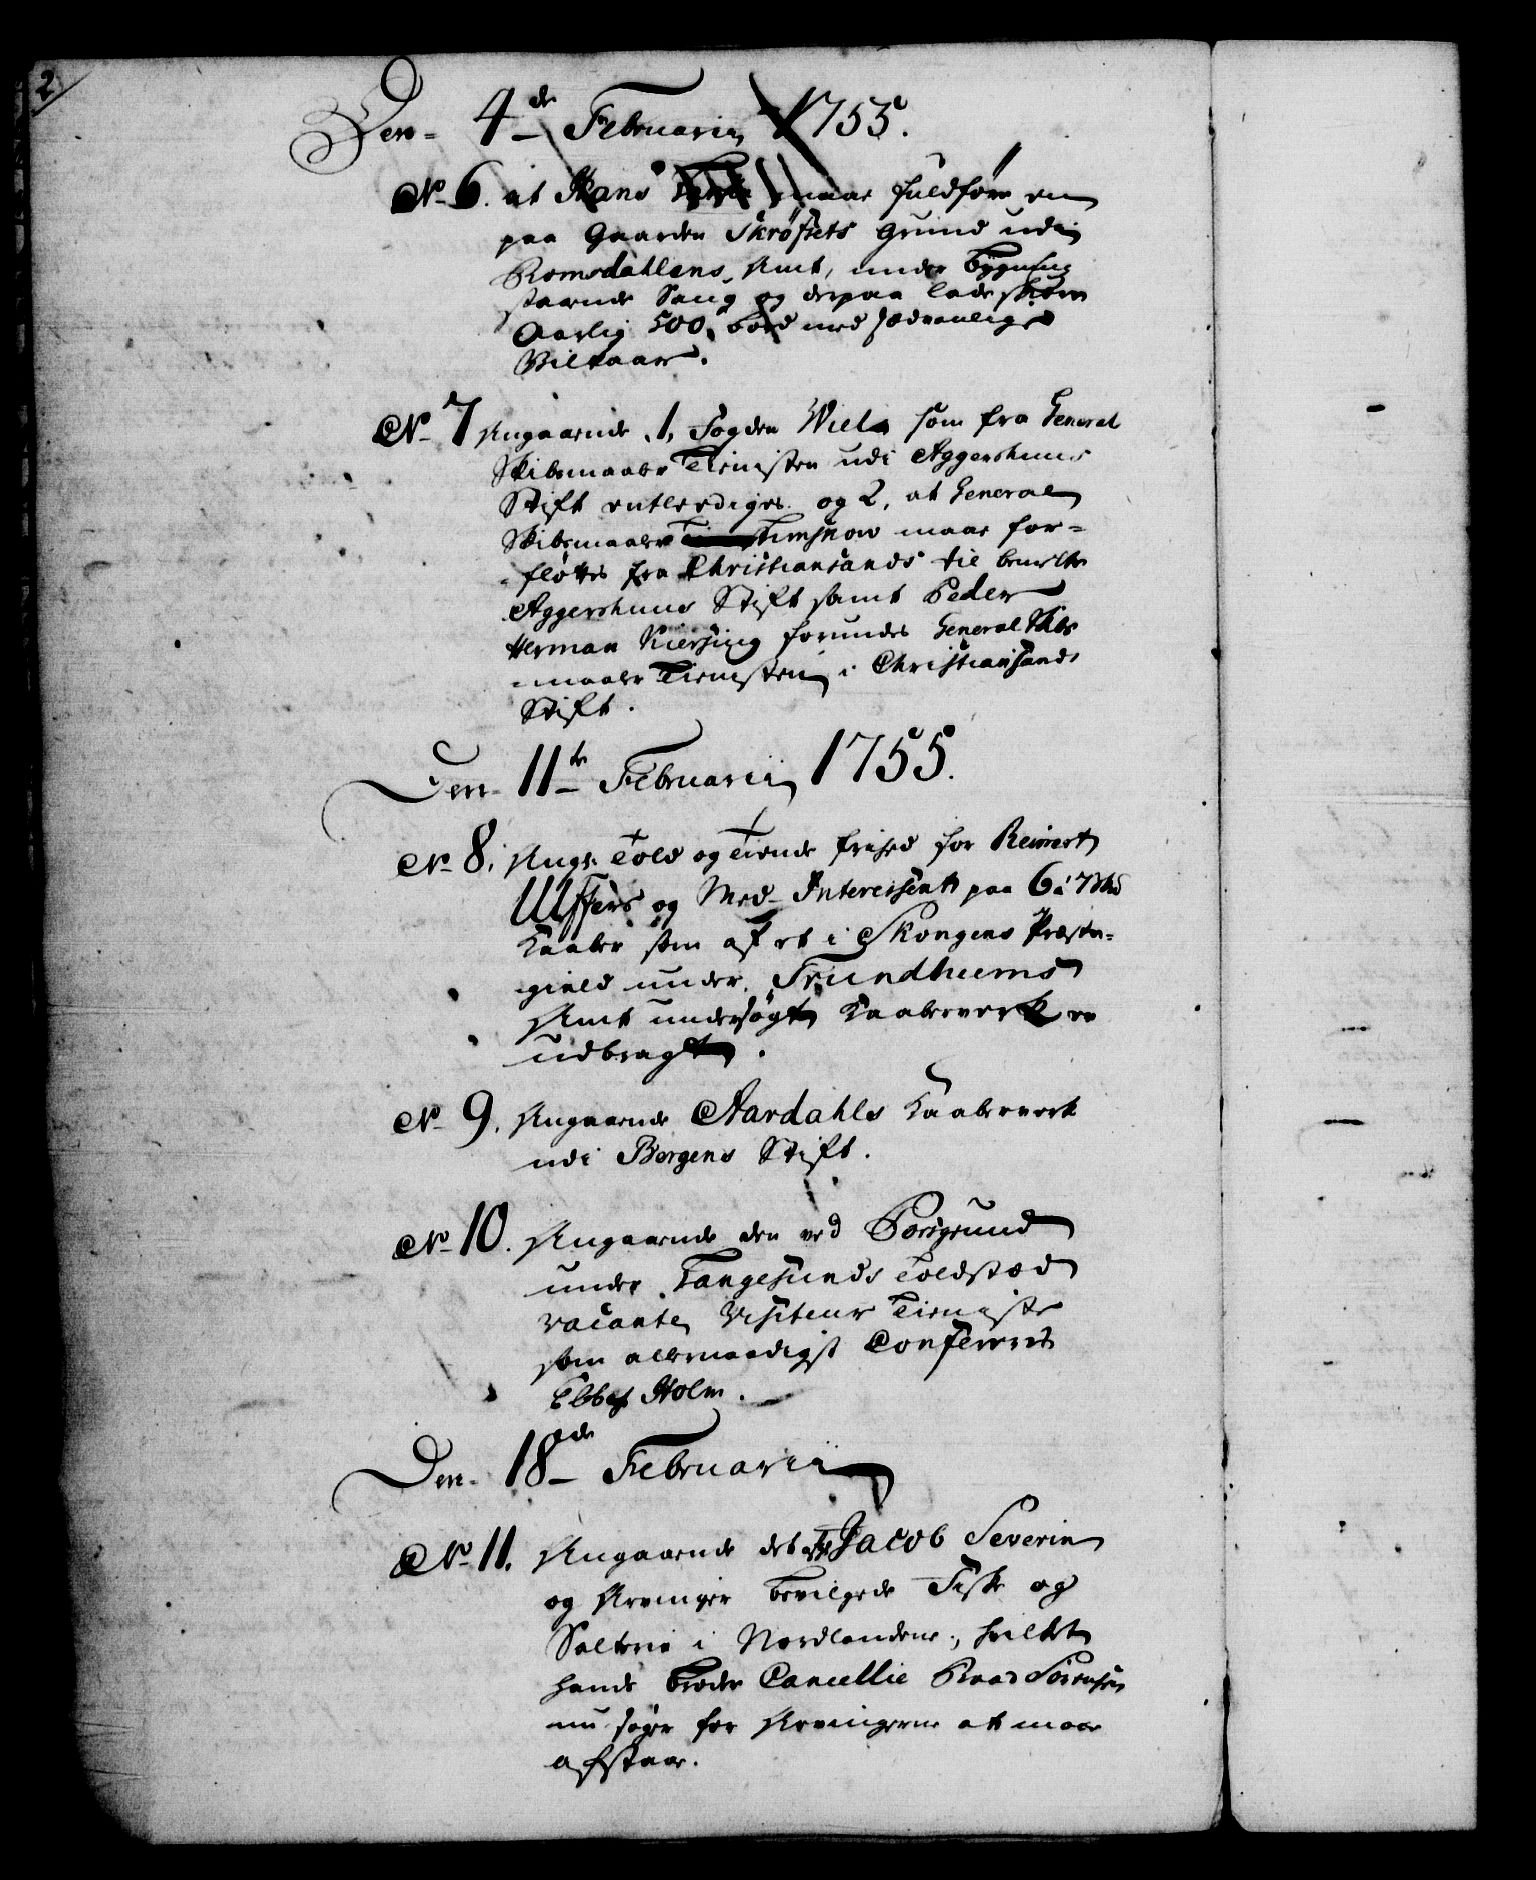 2
Den 4de Februarii 1755.
No 6. at Hans maae fuldføre en
paa Gaarden Skrøfsets Grund udi
Romsdahlens Amt, under Bygning
staaende Saug og derpaa lade skiære
Aarlig 500 bord med sædvanlige
Vilkaar.
No 7 Angaaende 1, Fogden Wiel som fra General
Skibsmaaler Tienisten udi Aggershuus
Stift entlediges og 2, at General
Skibsmaaler maae for-
-fløttes fra Christiansands til bemelte
Aggershuus Stift samt Peder
Herman forundes General Skibs
-maaler Tienisten i Christiansands
Stift.
Den 11te Februarii 1755.
No 8. Ang: Told og Tiende frihed for Reinert
og Med-Interessenter paa 6 á 7
Kaaber som af et i Skongens Præste-
gield under Trundhiems
Amt undersøgte Kaaberverk er
udbragt.
No 9. Angaaende Aardahls Kaaberverk
udi Bergens Stift.
No 10. Angaaende den ved Porsgrund
under Langesunds Toldstæd
vacante Visiteur Tieniste
som allernaadigst Confereres
Ebbe Holm.
Den 18de Februarii
No 11. Angaaende det Jacob Severin
og Arvinger bevilgede Fiske og
Salterie i Nordlandene, hvilket
hands Broder Cancellie Raad Sørensen
nu søger for Arvingerne at maae
afstaae.